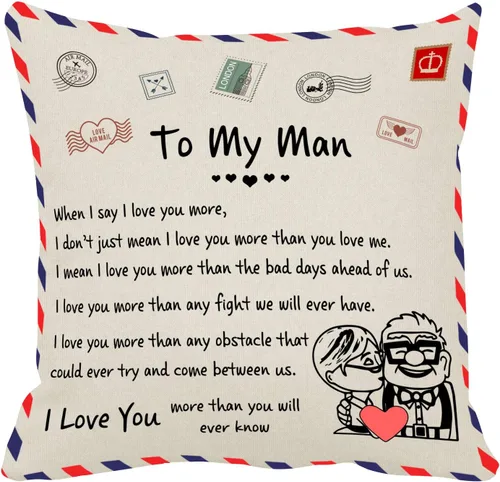 AIR MAIL
EUROPE
LONDON
LOVE
AIR MAIL
LOVE
MAIL
To My Man
When I say I love you more,
I don't just mean I love you more than you love me.
I mean I love you more than the bad days ahead of us.
I love you more than any fight we will ever have.
I love you more than any obstacle that
could ever try and come between us.
I Love You more than you will
ever know